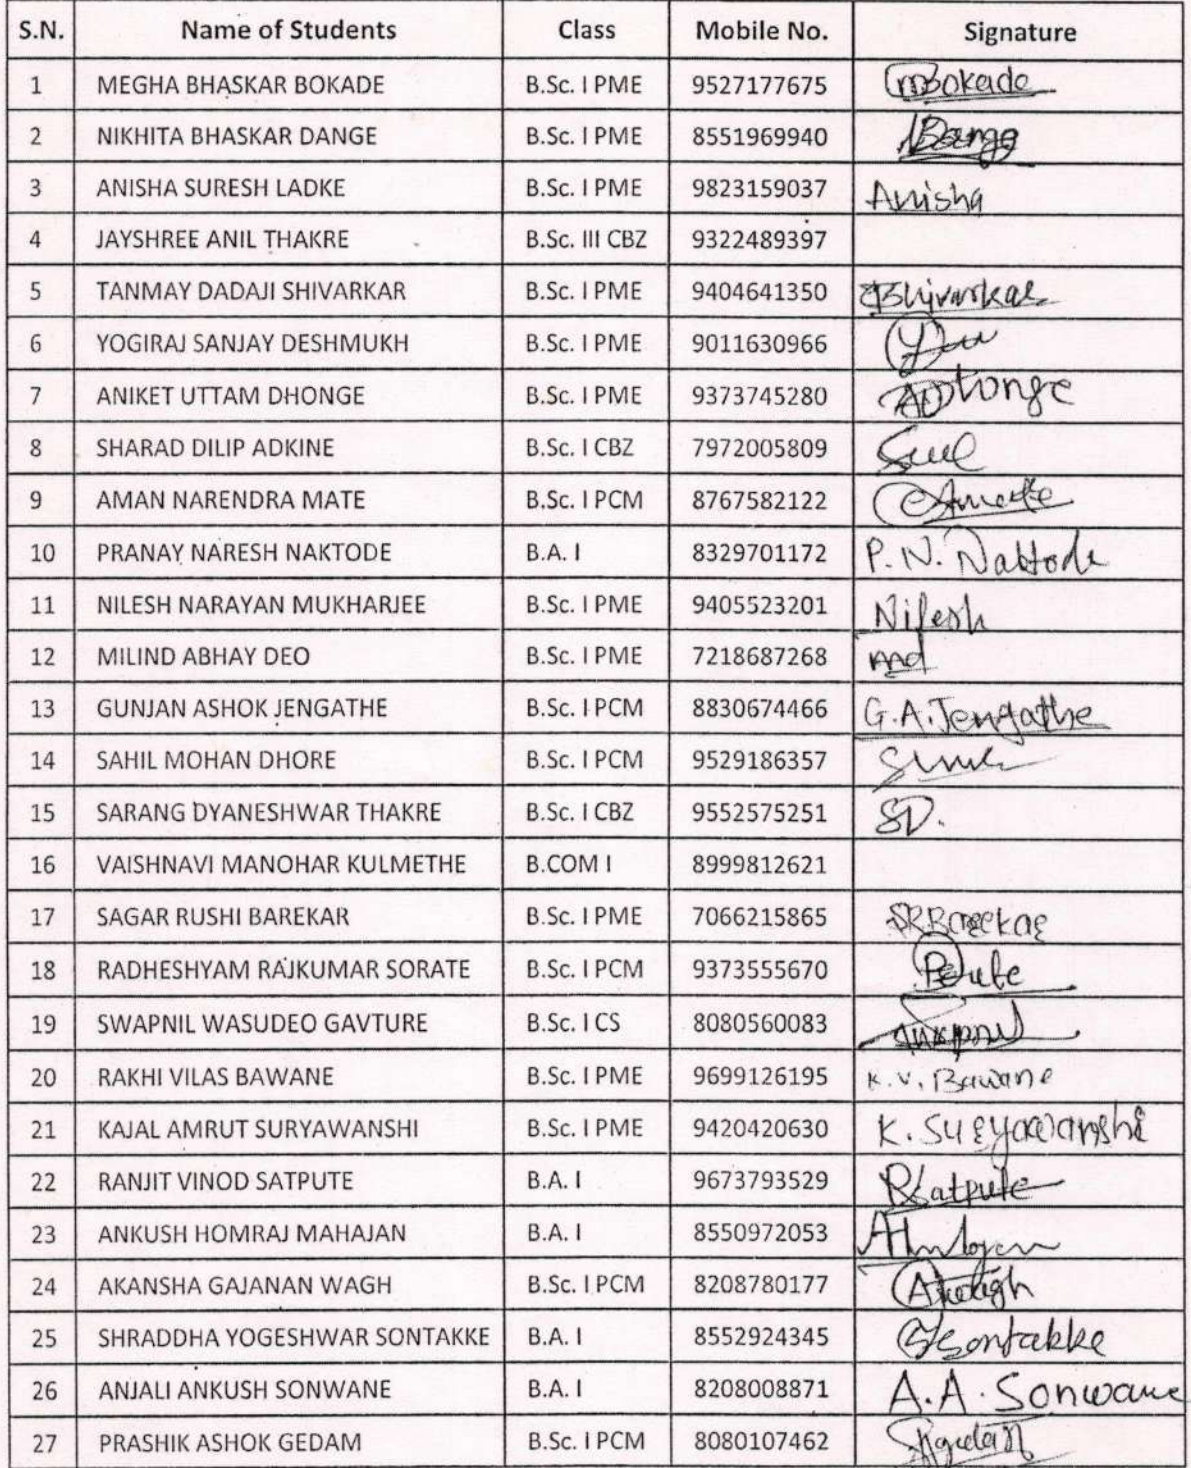 S.N. Name of Students Class Mobile No. Signature
1 MEGHA BHASKAR BOKADE B.Sc. I PME 9527177675 mBokade
2 NIKHITA BHASKAR DANGE B.Sc. I PME 8551969940
3 ANISHA SURESH LADKE B.Sc. I PME 9823159037 Anisha
4 JAYSHREE ANIL THAKRE B.Sc. III CBZ 9322489397
5 TANMAY DADAJI SHIVARKAR B.Sc. I PME 9404641350
6 YOGIRAJ SANJAY DESHMUKH B.Sc. I PME 9011630966
7 ANIKET UTTAM DHONGE B.Sc. I PME 9373745280 ADhonge
8 SHARAD DILIP ADKINE B.Sc. I CBZ 7972005809
9 AMAN NARENDRA MATE B.Sc. I PCM 8767582122
10 PRANAY NARESH NAKTODE B.A. I 8329701172 P. N. Naktode
11 NILESH NARAYAN MUKHARJEE B.Sc. I PME 9405523201 Nilesh
12 MILIND ABHAY DEO B.Sc. I PME 7218687268
13 GUNJAN ASHOK JENGATHE B.Sc. I PCM 8830674466 G.A.Jengathe
14 SAHIL MOHAN DHORE B.Sc. I PCM 9529186357
15 SARANG DYANESHWAR THAKRE B.Sc. I CBZ 9552575251 SD.
16 VAISHNAVI MANOHAR KULMETHE B.COM I 8999812621
17 SAGAR RUSHI BAREKAR B.Sc. I PME 7066215865 SRBarekar
18 RADHESHYAM RAJKUMAR SORATE B.Sc. I PCM 9373555670
19 SWAPNIL WASUDEO GAVTURE B.Sc. I CS 8080560083
20 RAKHI VILAS BAWANE B.Sc. I PME 9699126195 R. V. Bawane
21 KAJAL AMRUT SURYAWANSHI B.Sc. I PME 9420420630 K. Suryawanshi
22 RANJIT VINOD SATPUTE B.A. I 9673793529 RSatpute
23 ANKUSH HOMRAJ MAHAJAN B.A. I 8550972053
24 AKANSHA GAJANAN WAGH B.Sc. I PCM 8208780177
25 SHRADDHA YOGESHWAR SONTAKKE B.A. I 8552924345
26 ANJALI ANKUSH SONWANE B.A. I 8208008871 A.A. Sonwane
27 PRASHIK ASHOK GEDAM B.Sc. I PCM 8080107462